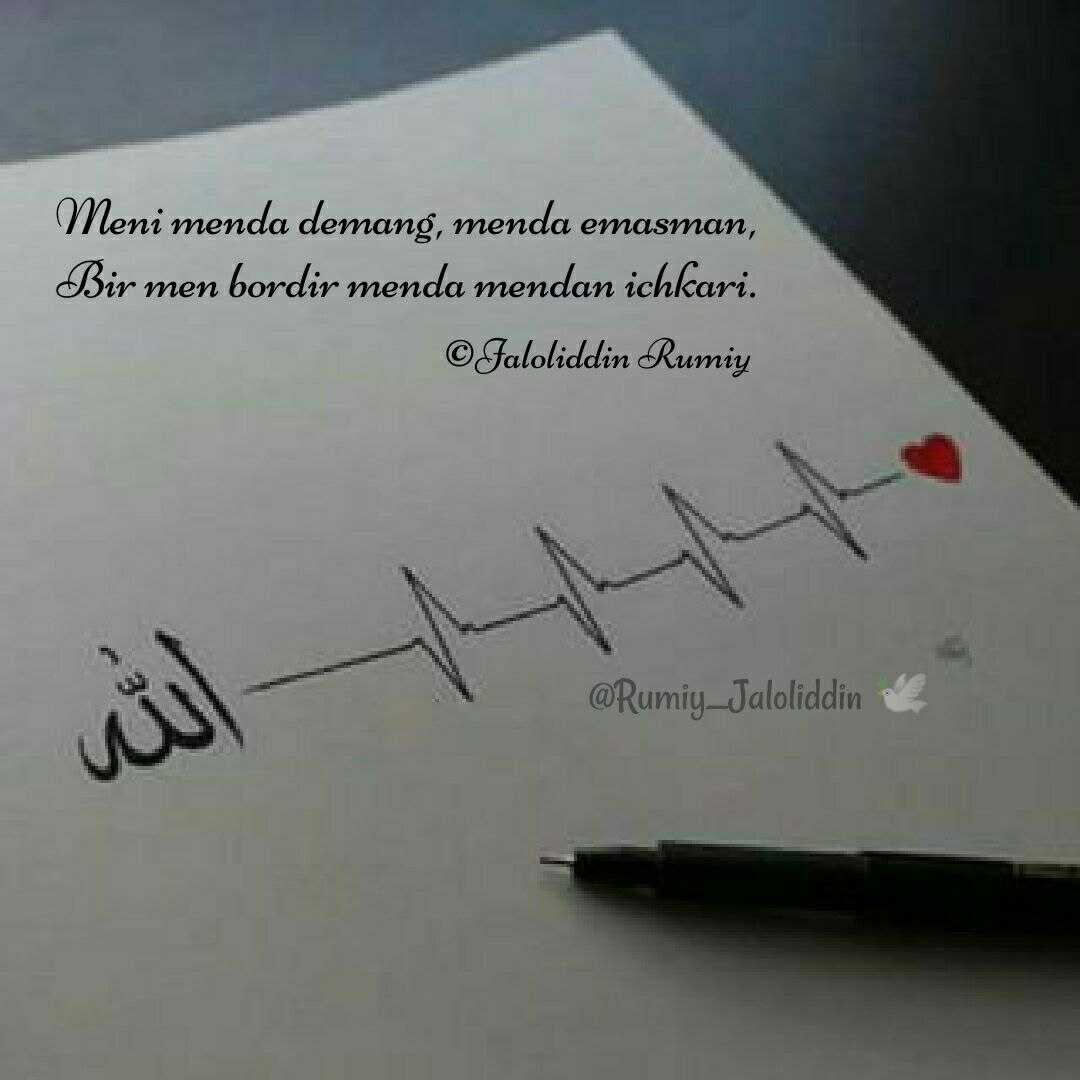 Meni menda demang, menda emasman,
Bir men bordir menda mendan ichkari.
©Jaloliddin Rumiy
الله
@Rumiy_Jaloliddin 🕊